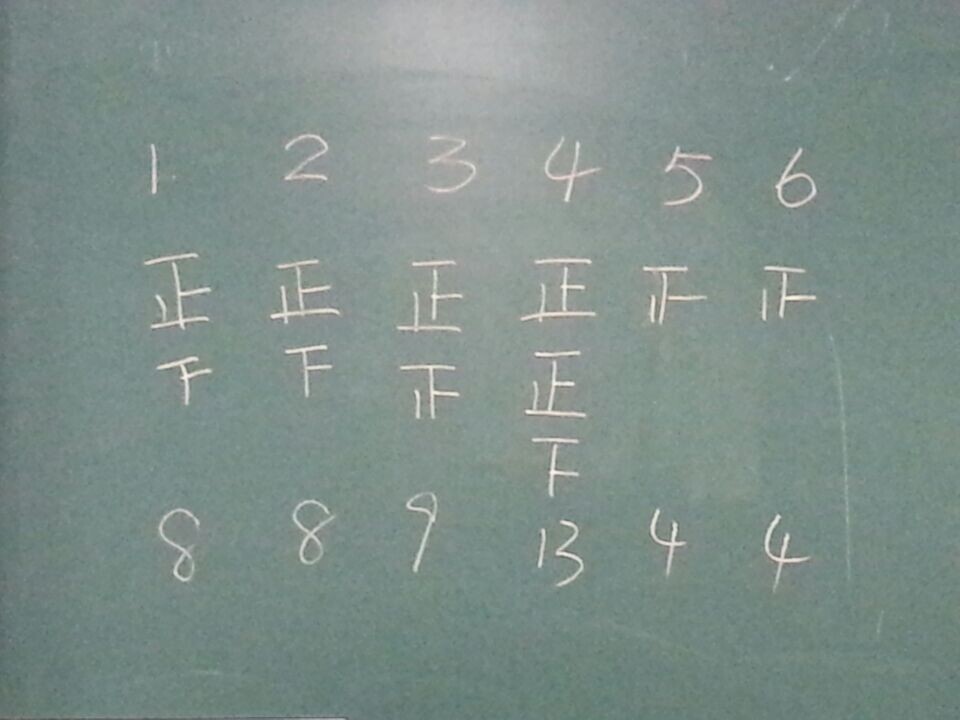 1 2 3 4 5 6
正 正 正 正 正 正
下 下 正 正
下
8 8 9 13 4 4